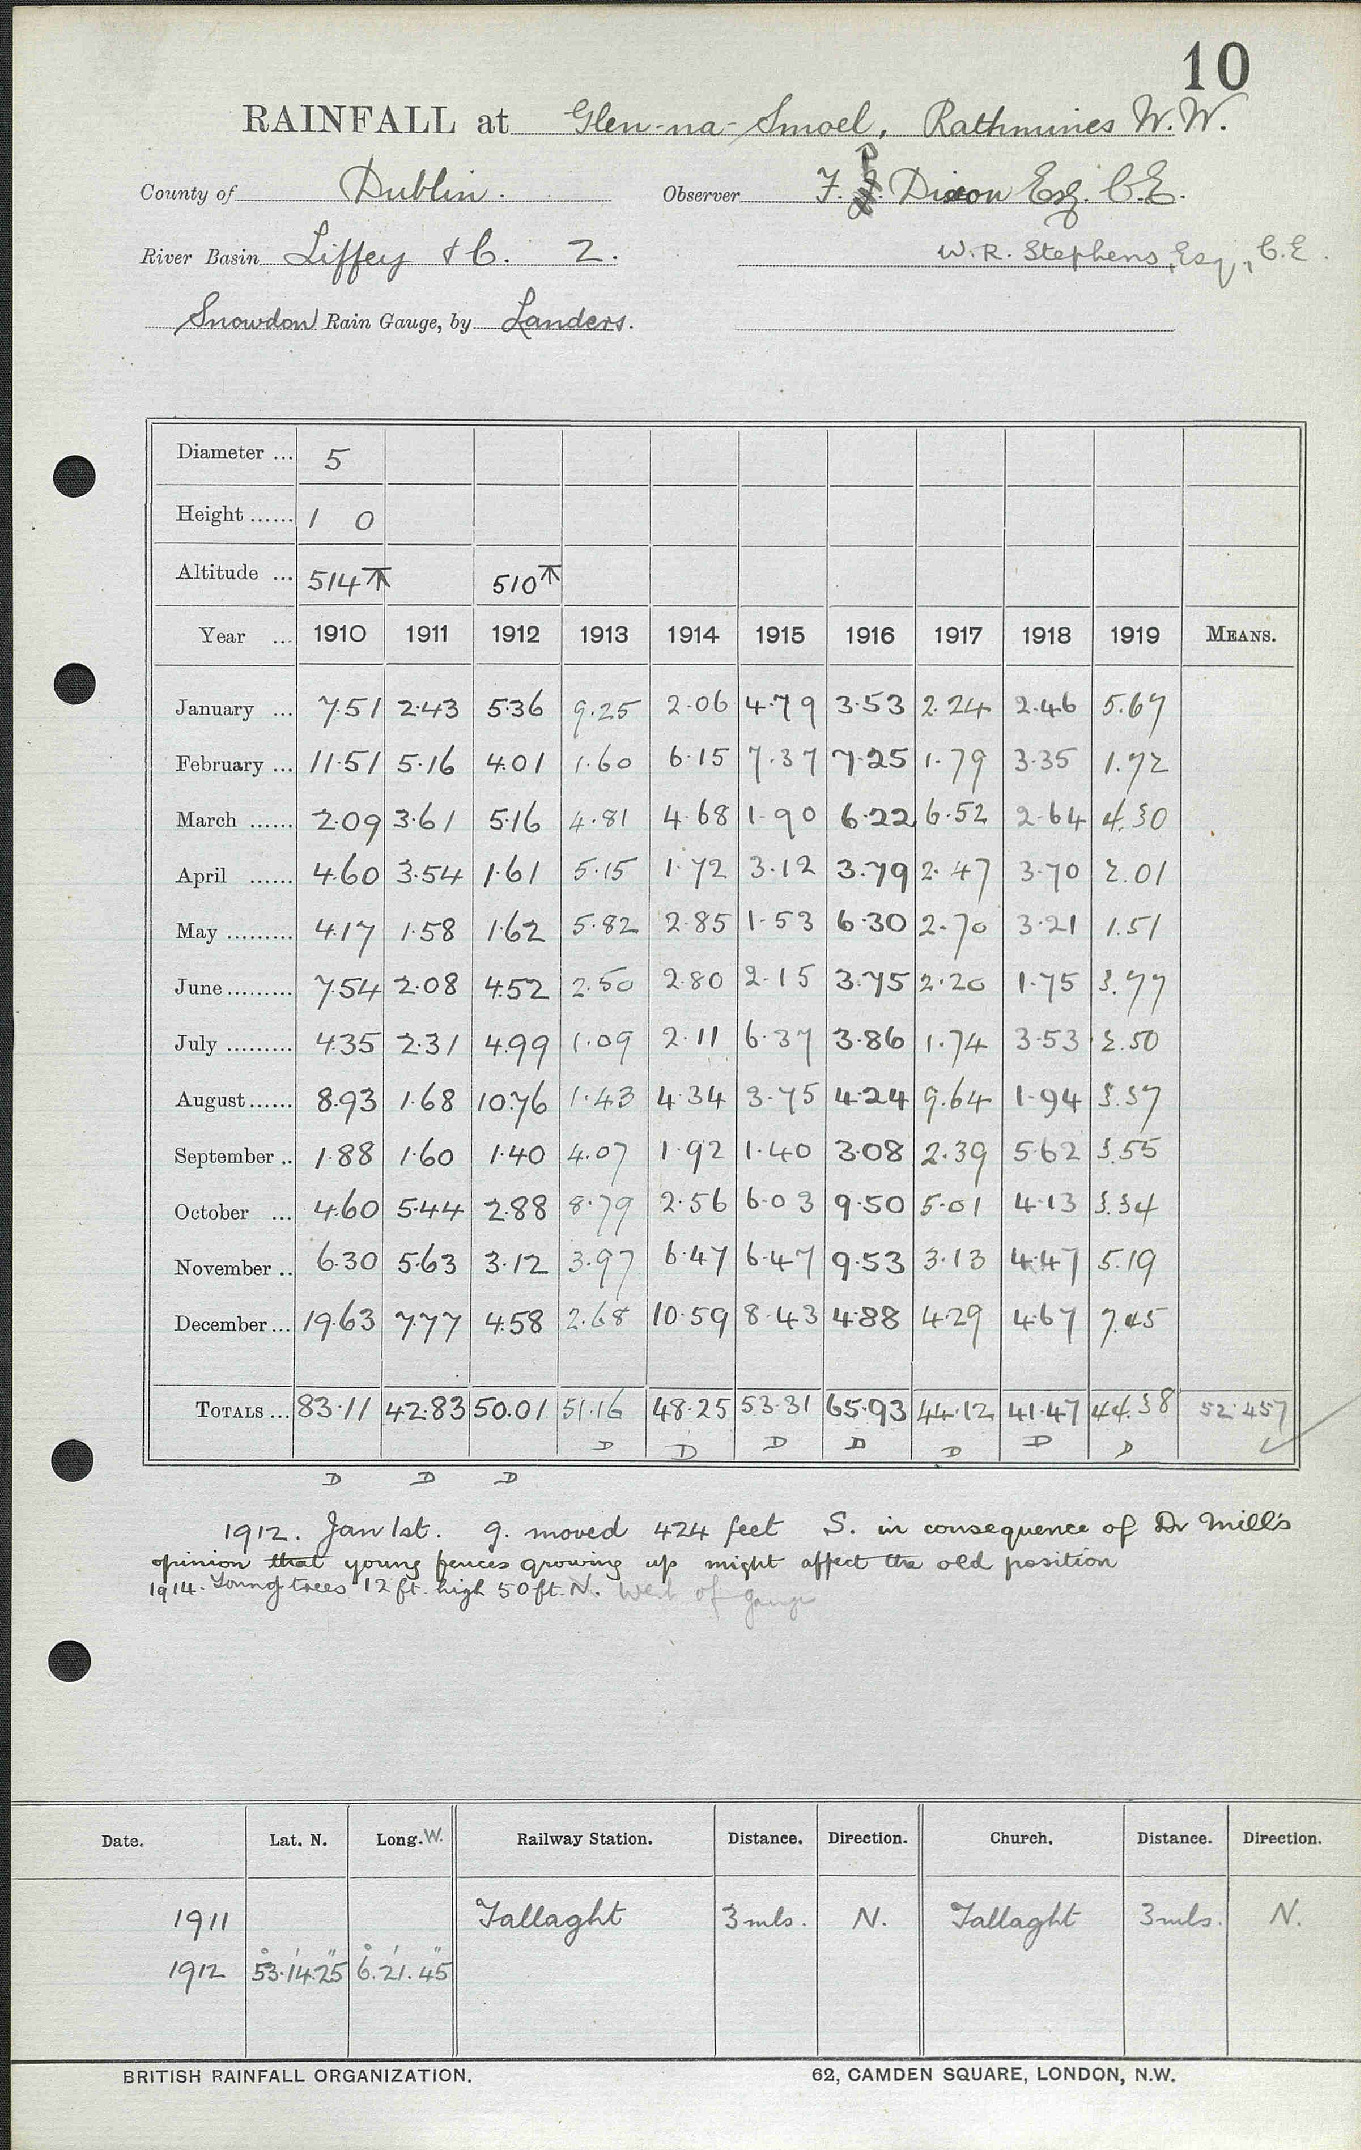 10
RAINFALL at Glen-na-Smoel, Rathmines W.W.
County of Dublin. Observer F. P. Dixon Esq. C.E.
River Basin Liffey &c. 2. W.R. Stephens, Esq., C.E.
Snowdon Rain Gauge, by Landers.
Diameter ... 5
Height ...... 1 0
Altitude ... 514 ⊼ 510 ⊼
Year ... 1910 1911 1912 1913 1914 1915 1916 1917 1918 1919 MEANS.
January ... 7.51 2.43 5.36 9.25 2.06 4.79 3.53 2.24 2.46 5.67
February ... 11.51 5.16 4.01 1.60 6.15 7.37 7.25 1.79 3.35 1.72
March ...... 2.09 3.61 5.16 4.81 4.68 1.90 6.22 6.52 2.64 4.30
April ...... 4.60 3.54 1.61 5.15 1.72 3.12 3.79 2.47 3.70 2.01
May ......... 4.17 1.58 1.62 5.82 2.85 1.53 6.30 2.70 3.21 1.51
June ......... 7.54 2.08 4.52 2.50 2.80 2.15 3.75 2.20 1.75 3.77
July ......... 4.35 2.31 4.99 1.09 2.11 6.37 3.86 1.74 3.53 2.50
August ...... 8.93 1.68 10.76 1.43 4.34 3.75 4.24 9.64 1.94 3.37
September .. 1.88 1.60 1.40 4.07 1.92 1.40 3.08 2.39 5.62 3.55
October ... 4.60 5.44 2.88 8.79 2.56 6.03 9.50 5.01 4.13 3.34
November .. 6.30 5.63 3.12 3.97 6.47 6.47 9.53 3.13 4.47 5.19
December ... 19.63 7.77 4.58 2.68 10.59 8.43 4.88 4.29 4.67 7.45
TOTALS ... 83.11 42.83 50.01 51.16 48.25 53.31 65.93 44.12 41.47 44.38 52.457
D D D D D D D
D D D
1912. Jan 1st. g. moved 424 feet S. in consequence of Dr Mill's
opinion that young fences growing up might affect the old position
1914. Young trees 12 ft. high 50 ft. N. West of gauge
Date. Lat. N. Long. W. Railway Station. Distance. Direction. Church. Distance. Direction.
1911 Tallaght 3 mls. N. Tallaght 3 mls. N.
1912 53° 14' 25" 6° 21' 45"
BRITISH RAINFALL ORGANIZATION. 62, CAMDEN SQUARE, LONDON, N.W.